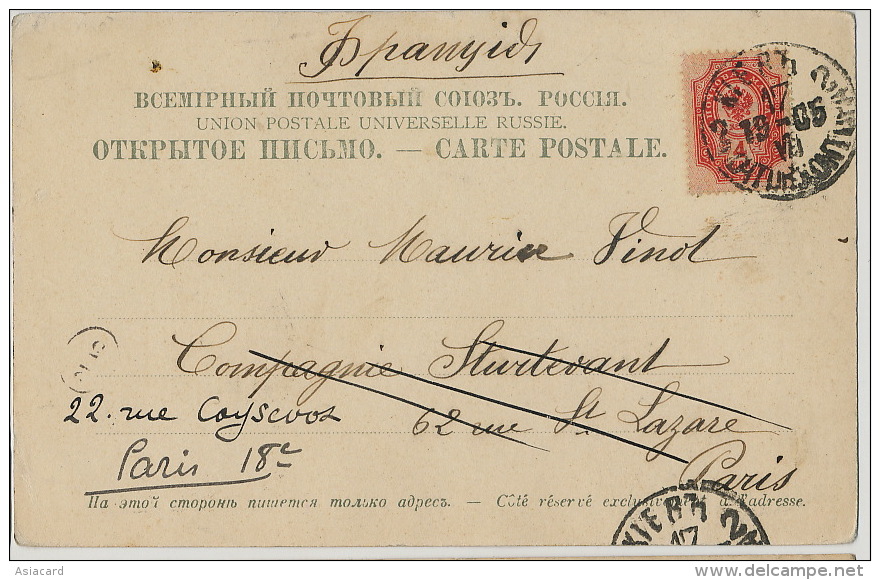 Франція
ВСЕМІРНЫЙ ПОЧТОВЫЙ СОЮЗЪ. РОССІЯ.
UNION POSTALE UNIVERSELLE RUSSIE.
ОТКРЫТОЕ ПИСЬМО. — CARTE POSTALE.
4
19-05
VII
Monsieur Maurice Vinot
Compagnie Sturtevant
22. rue Coysevox
62 rue St Lazare
Paris 18e
Paris
На этой сторонѣ пишется только адресъ. — Côté réservé exclusivement à l'adresse.
КІЕВЪ
17
Asiacard
delcampe.net